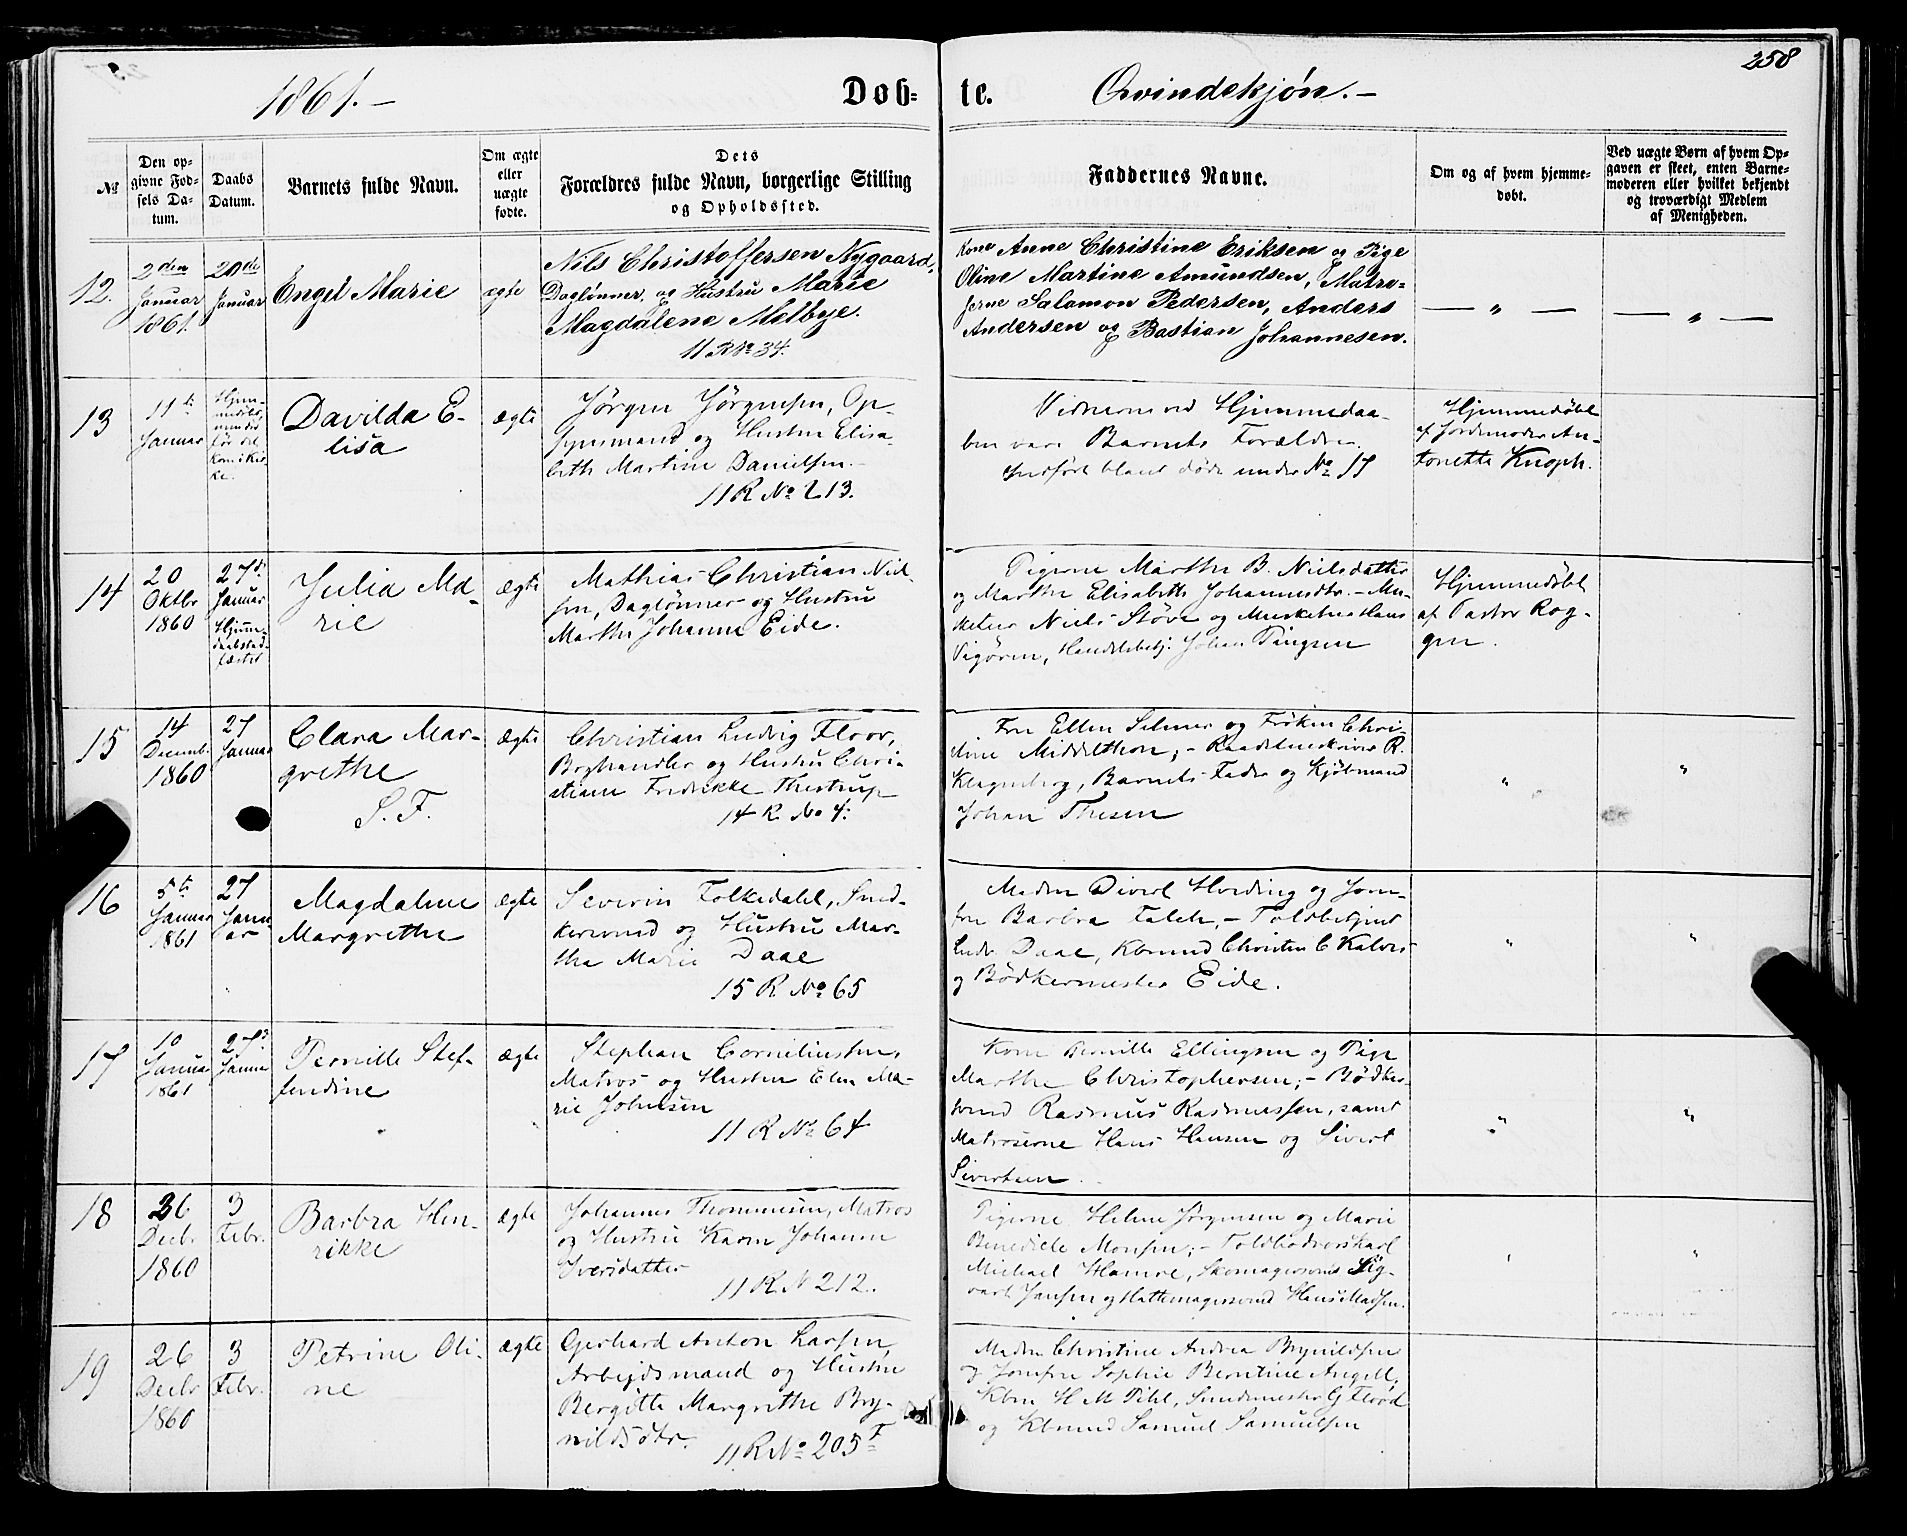 258
1861.–
Døb-
te.
Qvindekjøn.–
№
Den op-
givne Fød-
sels Da-
tum.
Daabs
Datum.
Barnets fulde Navn.
Om ægte
eller
uægte
fødte.
Dets
Forældres fulde Navn, borgerlige Stilling
og Opholdssted.
Faddernes Navne.
Om og af hvem hjemme-
døbt.
Ved uægte Børn af hvem Op-
gaven er skeet, enten Barne-
moderen eller hvilket bekjendt
og troværdigt Medlem
af Menigheden.
12.
2den
Januar
1861.
20de
Januar
Engel Marie
ægte
Nils Christoffersen Nygaard,
Daglønner, og Hustru Marie
Magdalene Melbye.
11 R № 34.
Kone Anne Christine Eriksen og Pige
Oline Martine Amundsen, Matro-
serne Salamon Pedersen, Anders
Andersen og Bastian Johannesen.
— „ —
— „ —
13
11te
Januar
Hjem-
medøbt,
men død
før det
kom i Kir-
ke.
Davilda E-
lisa
ægte
Jørgen Jørgensen, Op-
synsmand og Hustru Elisa-
beth Martine Danielsen.–
11 R № 213.
Vidnerne ved Hjemmedaa-
ben vare Barnets Forældre.
Indført blant døde under № 17
Hjemmedøbt
af Jordemoder An-
tonette Knoph.
14
20
Oktbr
1860
27de
Januar
Hjem-
daabstad-
fæstet
Julia Ma-
rie
ægte
Mathias Christian Niel-
sen, Daglønner og Hustru
Marthe Johanne Eide.
Pigerne Marthe B. Nielsdatter
og Marthe Elisabeth Johannesdtr. – Mu-
sketeer Niels Støve og Musketeer Hans
Vigøren, Handelsbetj. Johan
Hjemmedøbt
af Pastor Rog-
gen.
15
14
Decemb.
1860
27
Januar
Clara Mar-
grethe
S. F.
ægte
Christian Ludvig Floor,
Boghandler og Hustru Chri-
stiane Fredrikke Thestrup
14 R. № 4.
Fru Ellen Selmer og Frøken Chri-
stine Middelthon; – Raadstueskriver R.
Klagenberg, Barnets Fader og Kjøbmand
Johan Thesen
„
„
16
5te
Januar
1861
27
Janu-
ar
Magdalene
Margrethe
ægte
Severin Folkedahl, Sned-
kersvend og Hustru Mar-
tha Marie Daae
15 R № 65
Madm Divert Hveding og Jom-
fru Barbra Falch, – Toldbetjent
Ludv. Daae, Kbmand Christen C Kahrs
og Bødkermester Eide.
„
„
17
10
Januar
1861
27de
Januar
Pernille Stef-
fendine
ægte
Stephan Corneliussen,
Matros og Hustru Elen Ma-
rie Johnsen
11 R № 64
Kone Pernille Ellingsen og Pige
Marthe Christophersen; – Bødker-
svend Rasmus Rasmussen, samt
Matroserne Hans Hansen og Sivert
Sivertsen.
„
„
18
26
Decbr.
1860
3
Febr.
Barbra Hen-
rikke
ægte
Johannes Thommesen, Matros
og Hustru Karen Johanne
Iversdatter
11 R № 212.
Pigerne Helene Jørgensen og Marie
Benedicte Monsen; – Toldbodvorskarl
Michael Hamre, Skomagersvend Sig-
vart Jansen og Hattemagersvend Hans Madsen.
„
„
19
26
Decbr
1860
3
Febr.
Petrine Oli-
ne
ægte
Gerhard Anton Larsen,
Arbeidsmand og Hustru
Bergitte Margrethe Bry-
nildsdtr.
11 R № 205
Madm Christine Andrea Brynildsen
og Jomfru Sophie Berntine Angell,
Kbm H M Pihl, Smedmester G Flood
og Kbmand Samuel Samuelsen